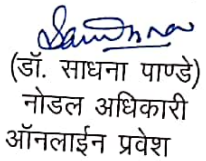 (डॉ. साधना पाण्डे)
नोडल अधिकारी
ऑनलाईन प्रवेश